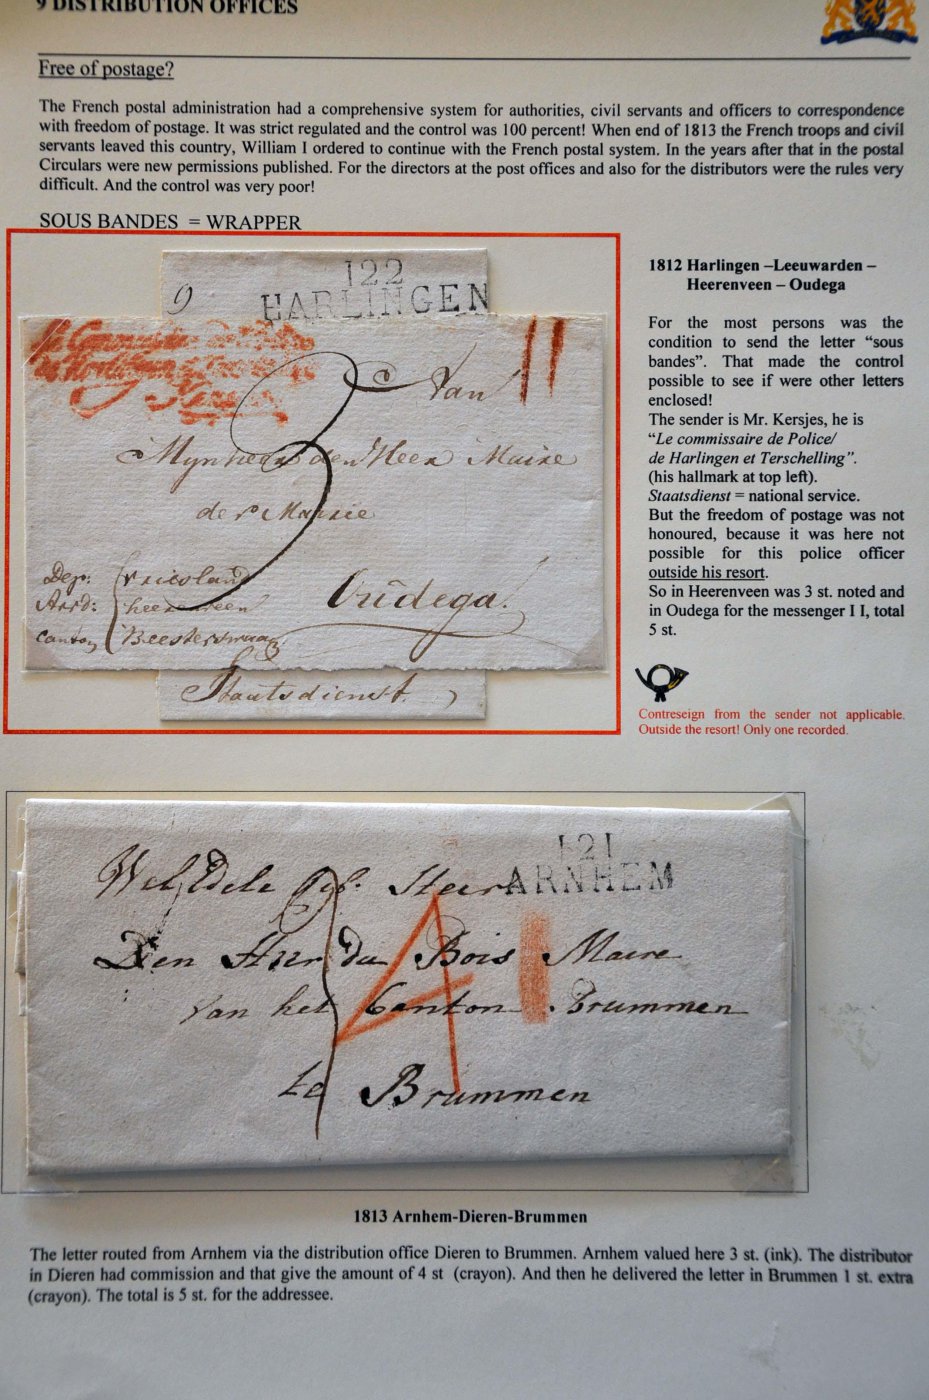 9 DISTRIBUTION OFFICES
Free of postage?
The French postal administration had a comprehensive system for authorities, civil servants and officers to correspondence
with freedom of postage. It was strict regulated and the control was 100 percent! When end of 1813 the French troops and civil
servants leaved this country, William I ordered to continue with the French postal system. In the years after that in the postal
Circulars were new permissions published. For the directors at the post offices and also for the distributors were the rules very
difficult. And the control was very poor!
SOUS BANDES = WRAPPER
122
9 HARLINGEN
3 Van
Mynheer den Heer Maire
der Mairie
Dep: friesland
Arrd: heerenveen
Canton Beesterswaag
Oudega.
Staatsdienst.
1812 Harlingen –Leeuwarden –
Heerenveen – Oudega
For the most persons was the
condition to send the letter “sous
bandes”. That made the control
possible to see if were other letters
enclosed!
The sender is Mr. Kersjes, he is
“Le commissaire de Police/
de Harlingen et Terschelling”.
(his hallmark at top left).
Staatsdienst = national service.
But the freedom of postage was not
honoured, because it was here not
possible for this police officer
outside his resort.
So in Heerenveen was 3 st. noted and
in Oudega for the messenger I I, total
5 st.
Contreseign from the sender not applicable.
Outside the resort! Only one recorded.
121
ARNHEM
Wel Edele Heer
Den Heer du Bois Maire
van het Canton Brummen
te Brummen
3 4 1
1813 Arnhem-Dieren-Brummen
The letter routed from Arnhem via the distribution office Dieren to Brummen. Arnhem valued here 3 st. (ink). The distributor
in Dieren had commission and that give the amount of 4 st (crayon). And then he delivered the letter in Brummen 1 st. extra
(crayon). The total is 5 st. for the addressee.